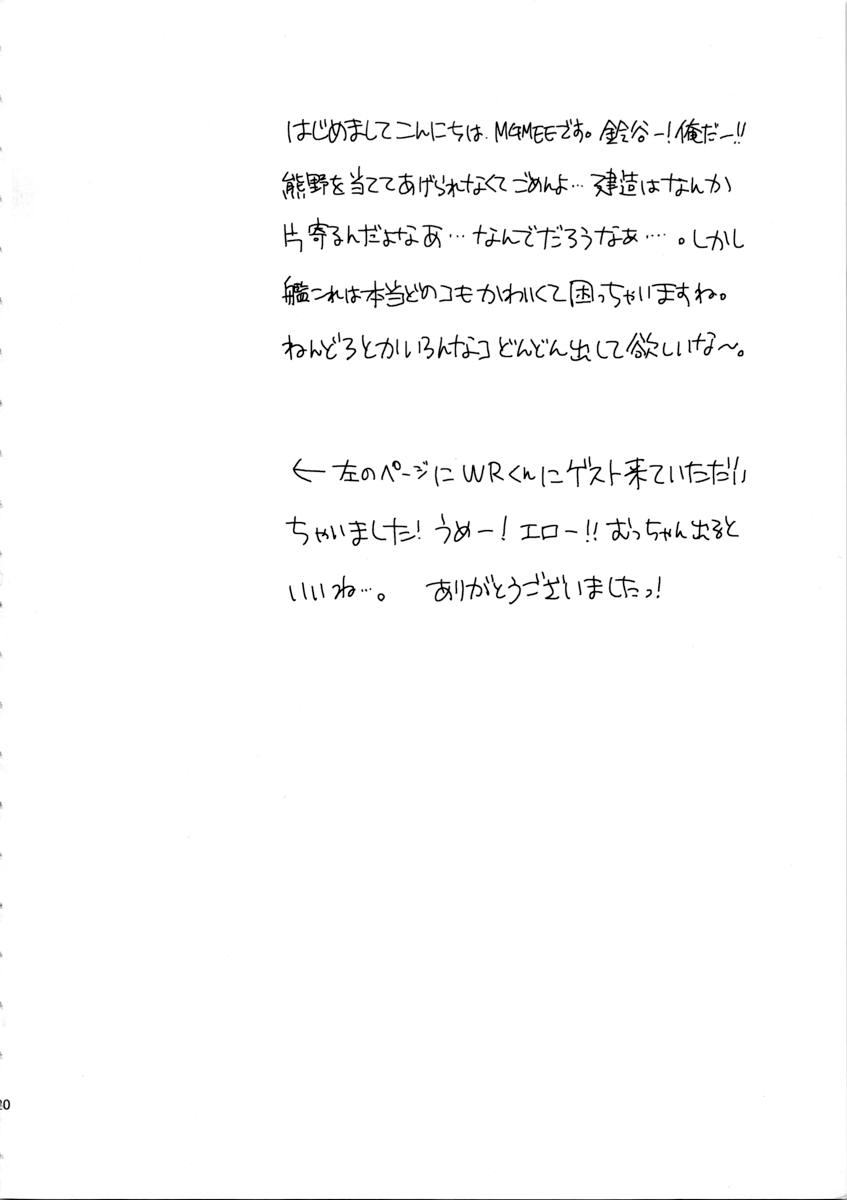 はじめましてこんにちは、M4MEEです。鈴谷ー!俺だー!!
熊野を当ててあげられなくてごめんよ…建造はなんか
片寄るんだよなあ…なんでだろうなぁ…。しかし
艦これは本当どのコもかわいくて困っちゃいますね。
ねんどろとかいろんなコどんどん出して欲しいな〜。
←左のページにWRくんにゲスト来ていただい
ちゃいました!うめー!エロー!!むっちゃん出ると
いいね…。 ありがとうございましたっ!
20